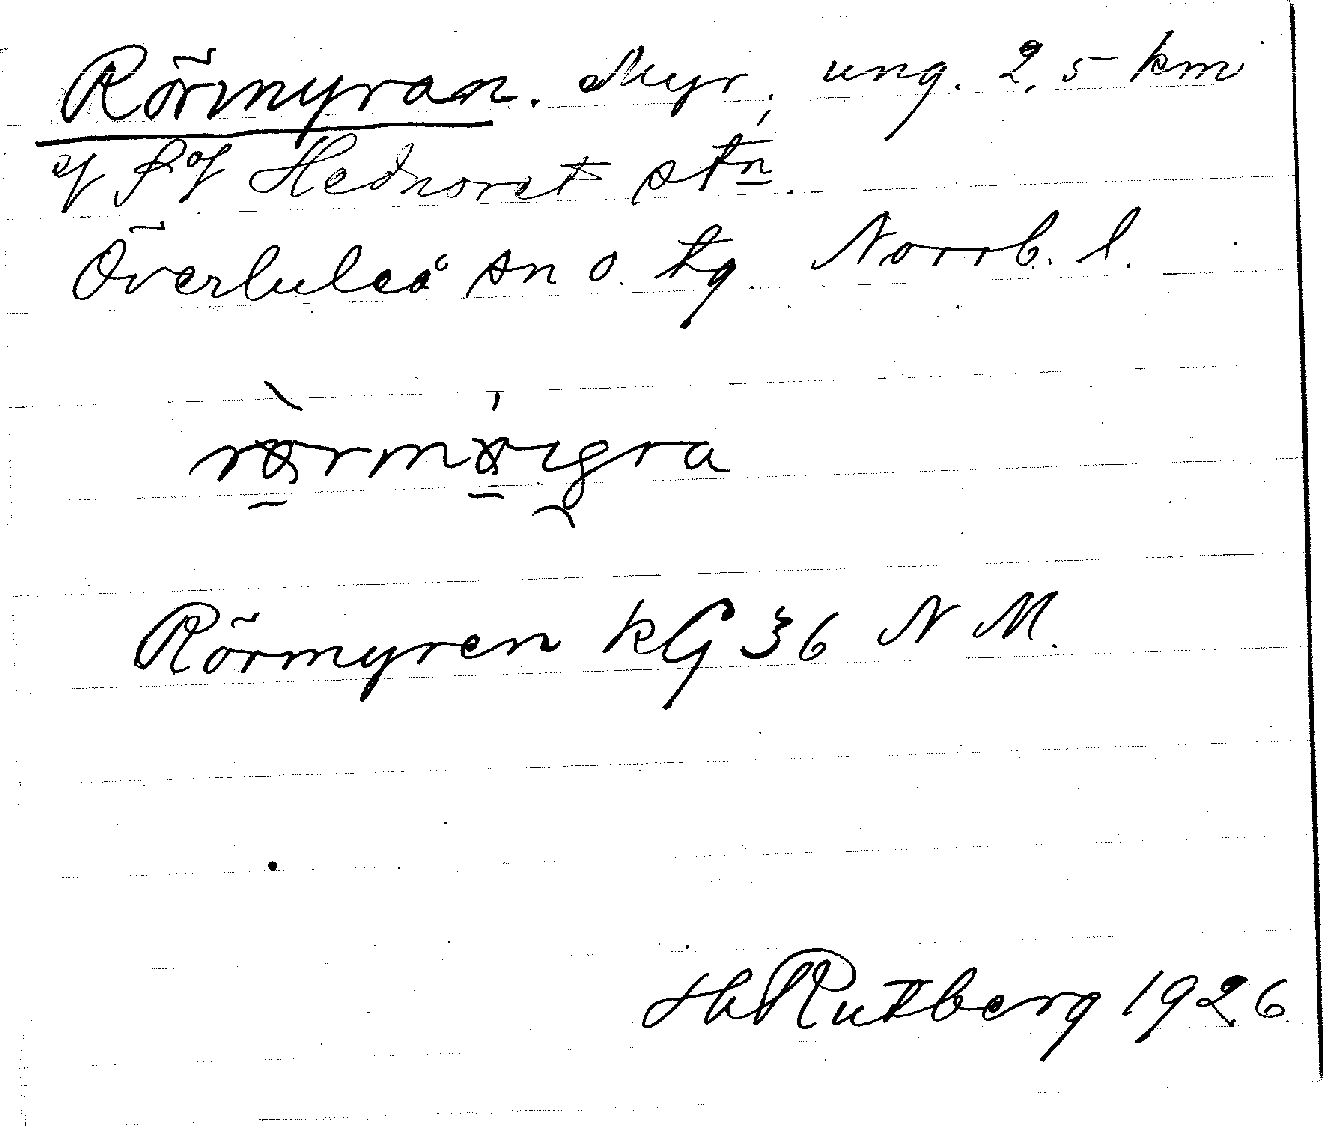 Rörmyran. Myr, ung. 2,5 km
Hednoret stn.
Överluleå sn o. tg. Norrb. l.
Rörmyren kG 36 N M.
H Rutberg 1926